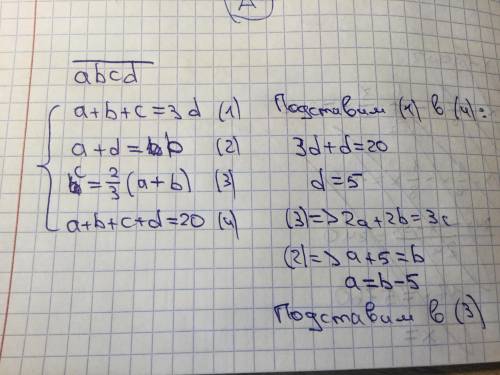 A
abcd
a+b+c=3d (1)
a+d=b (2)
c=2/3(a+b) (3)
a+b+c+d=20 (4)
Подставим (1) в (4):
3d+d=20
d=5
(3)=>2a+2b=3c
(2)=>a+5=b
a=b-5
Подставим в (3)